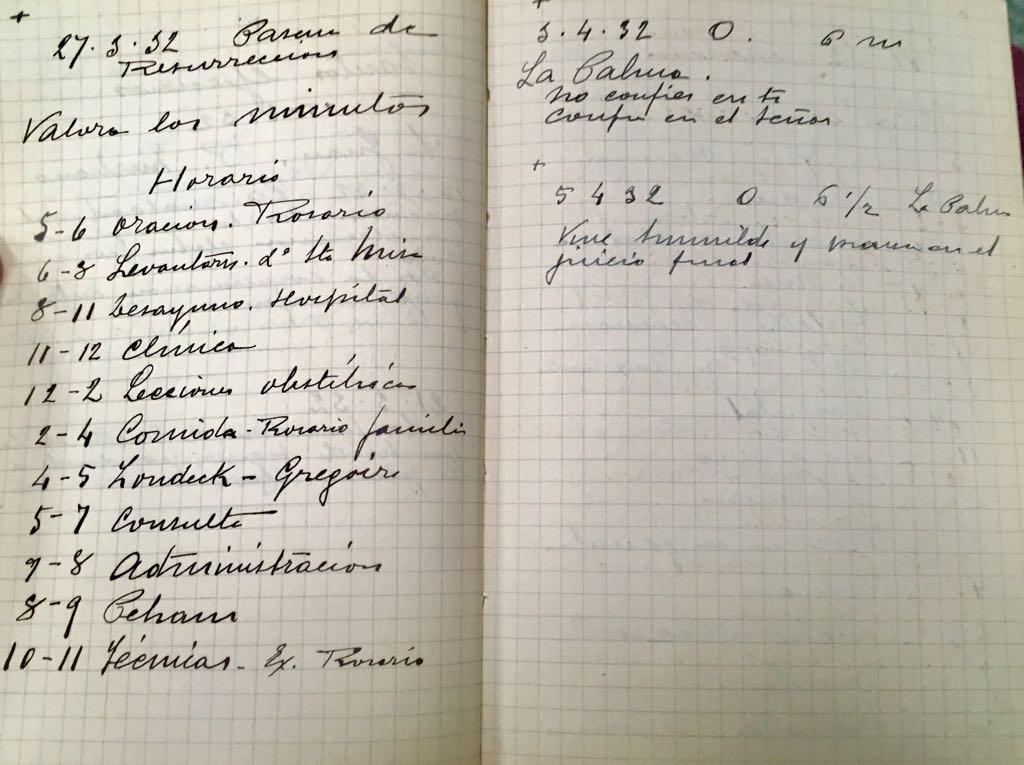 +
27.3.32 Pascua de
Resurrección
Valora los minutos
Horario
5-6 oración. Rosario
6-8 Levantarse. Sta Misa
8-11 Desayuno. Hospital
11-12 Clínica
12-2 Lecciones obstétricas
2-4 Comida - Rosario familia
4-5 - Gregoire
5-7 Consulta
7-8 Administración
8-9
10-11 Técnicas - Ex. Rosario
+
3.4.32 O. 6 m
La Palma.
no confíes en ti
confía en el Señor
+
5 4 32 O 6 1/2 La Palma
Vive humilde y piensa en el
juicio final